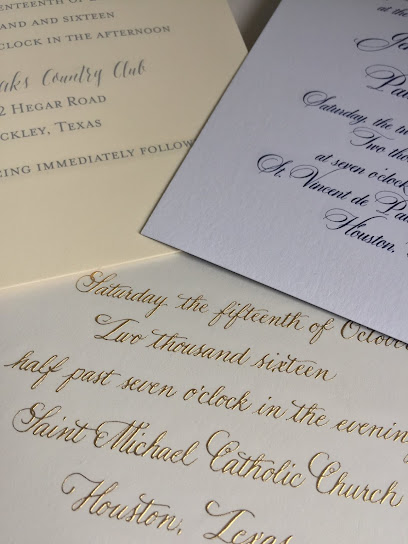 AND SIXTEEN
O'CLOCK IN THE AFTERNOON
Country Club
HEGAR ROAD
TEXAS
IMMEDIATELY
at the
Saturday, the
Two
at seven o'clock
St. Vincent de
Houston,
Saturday, the fifteenth of
Two thousand sixteen
half past seven o'clock in the evening
Saint Michael Catholic Church
Houston, Texas